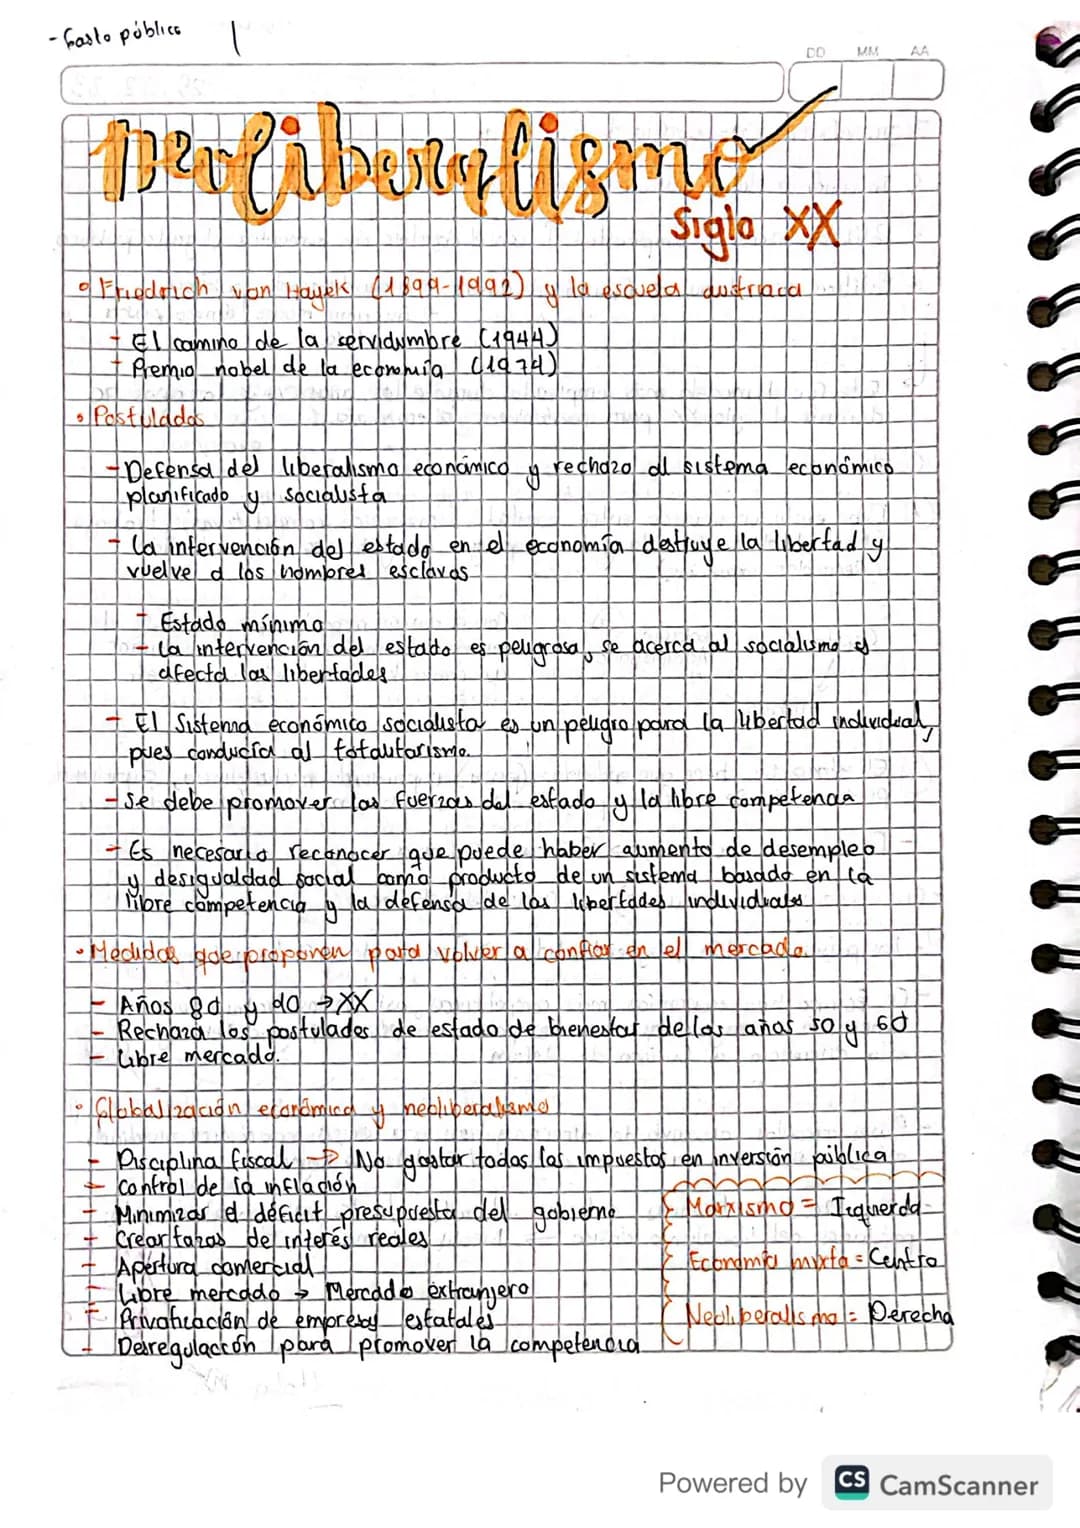 - Gasto público
DD MM AA
Neoliberalismo
Siglo XX
• Friedrich von Hayek (1899-1992) y la escuela austriaca
- El camino de la servidumbre (1944)
- Premio nobel de la economía (1974)
• Postulados
- Defensa del liberalismo económico y rechazo al sistema económico
planificado y socialista
- La intervención del estado en el economía destruye la libertad y
vuelve a los hombres esclavos
- Estado mínimo
- La intervención del estado es peligrosa, se acerca al socialismo y
afecta las libertades
- El Sistema económico socialista es un peligro para la libertad individual,
pues conducía al totalitarismo.
- Se debe promover las fuerzas del estado y la libre competencia
- Es necesario reconocer que puede haber aumento de desempleo
y desigualdad social como producto de un sistema basado en la
libre competencia y la defensa de las libertades individuales
• Medidas que proponen para volver a confiar en el mercado.
- Años 80 y 90 → XX
- Rechaza los postulados de estado de bienestar de los años 50 y 60
- Libre mercado.
• Globalización económica y neoliberalismo
- Disciplina fiscal → No gastar todos los impuestos en inversión pública
- Control de la inflación
- Minimizar el déficit presupuesta del gobierno
- Crear tazas de interés reales
- Apertura comercial
- Libre mercado → Mercado extranjero
- Privatización de empresas estatales
- Desregulación para promover la competencia
Marxismo = Izquierda
Economía mixta = Centro
Neoliberalismo = Derecha
Powered by CS CamScanner